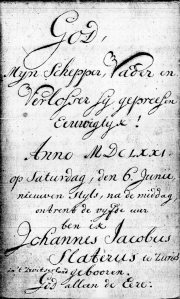 God,
Mÿn Schepper, Vader en
Verlosser sÿ gepresen
Eeuwiglyk!
Anno MDCLXXI.
op Saturdag, den 6 Junie,
nieuwen Styls, na de middag
ontrent de vyfde uur
ben ik
Johannis Jacobus
te Zurich
gebooren.
God allan de Eere.